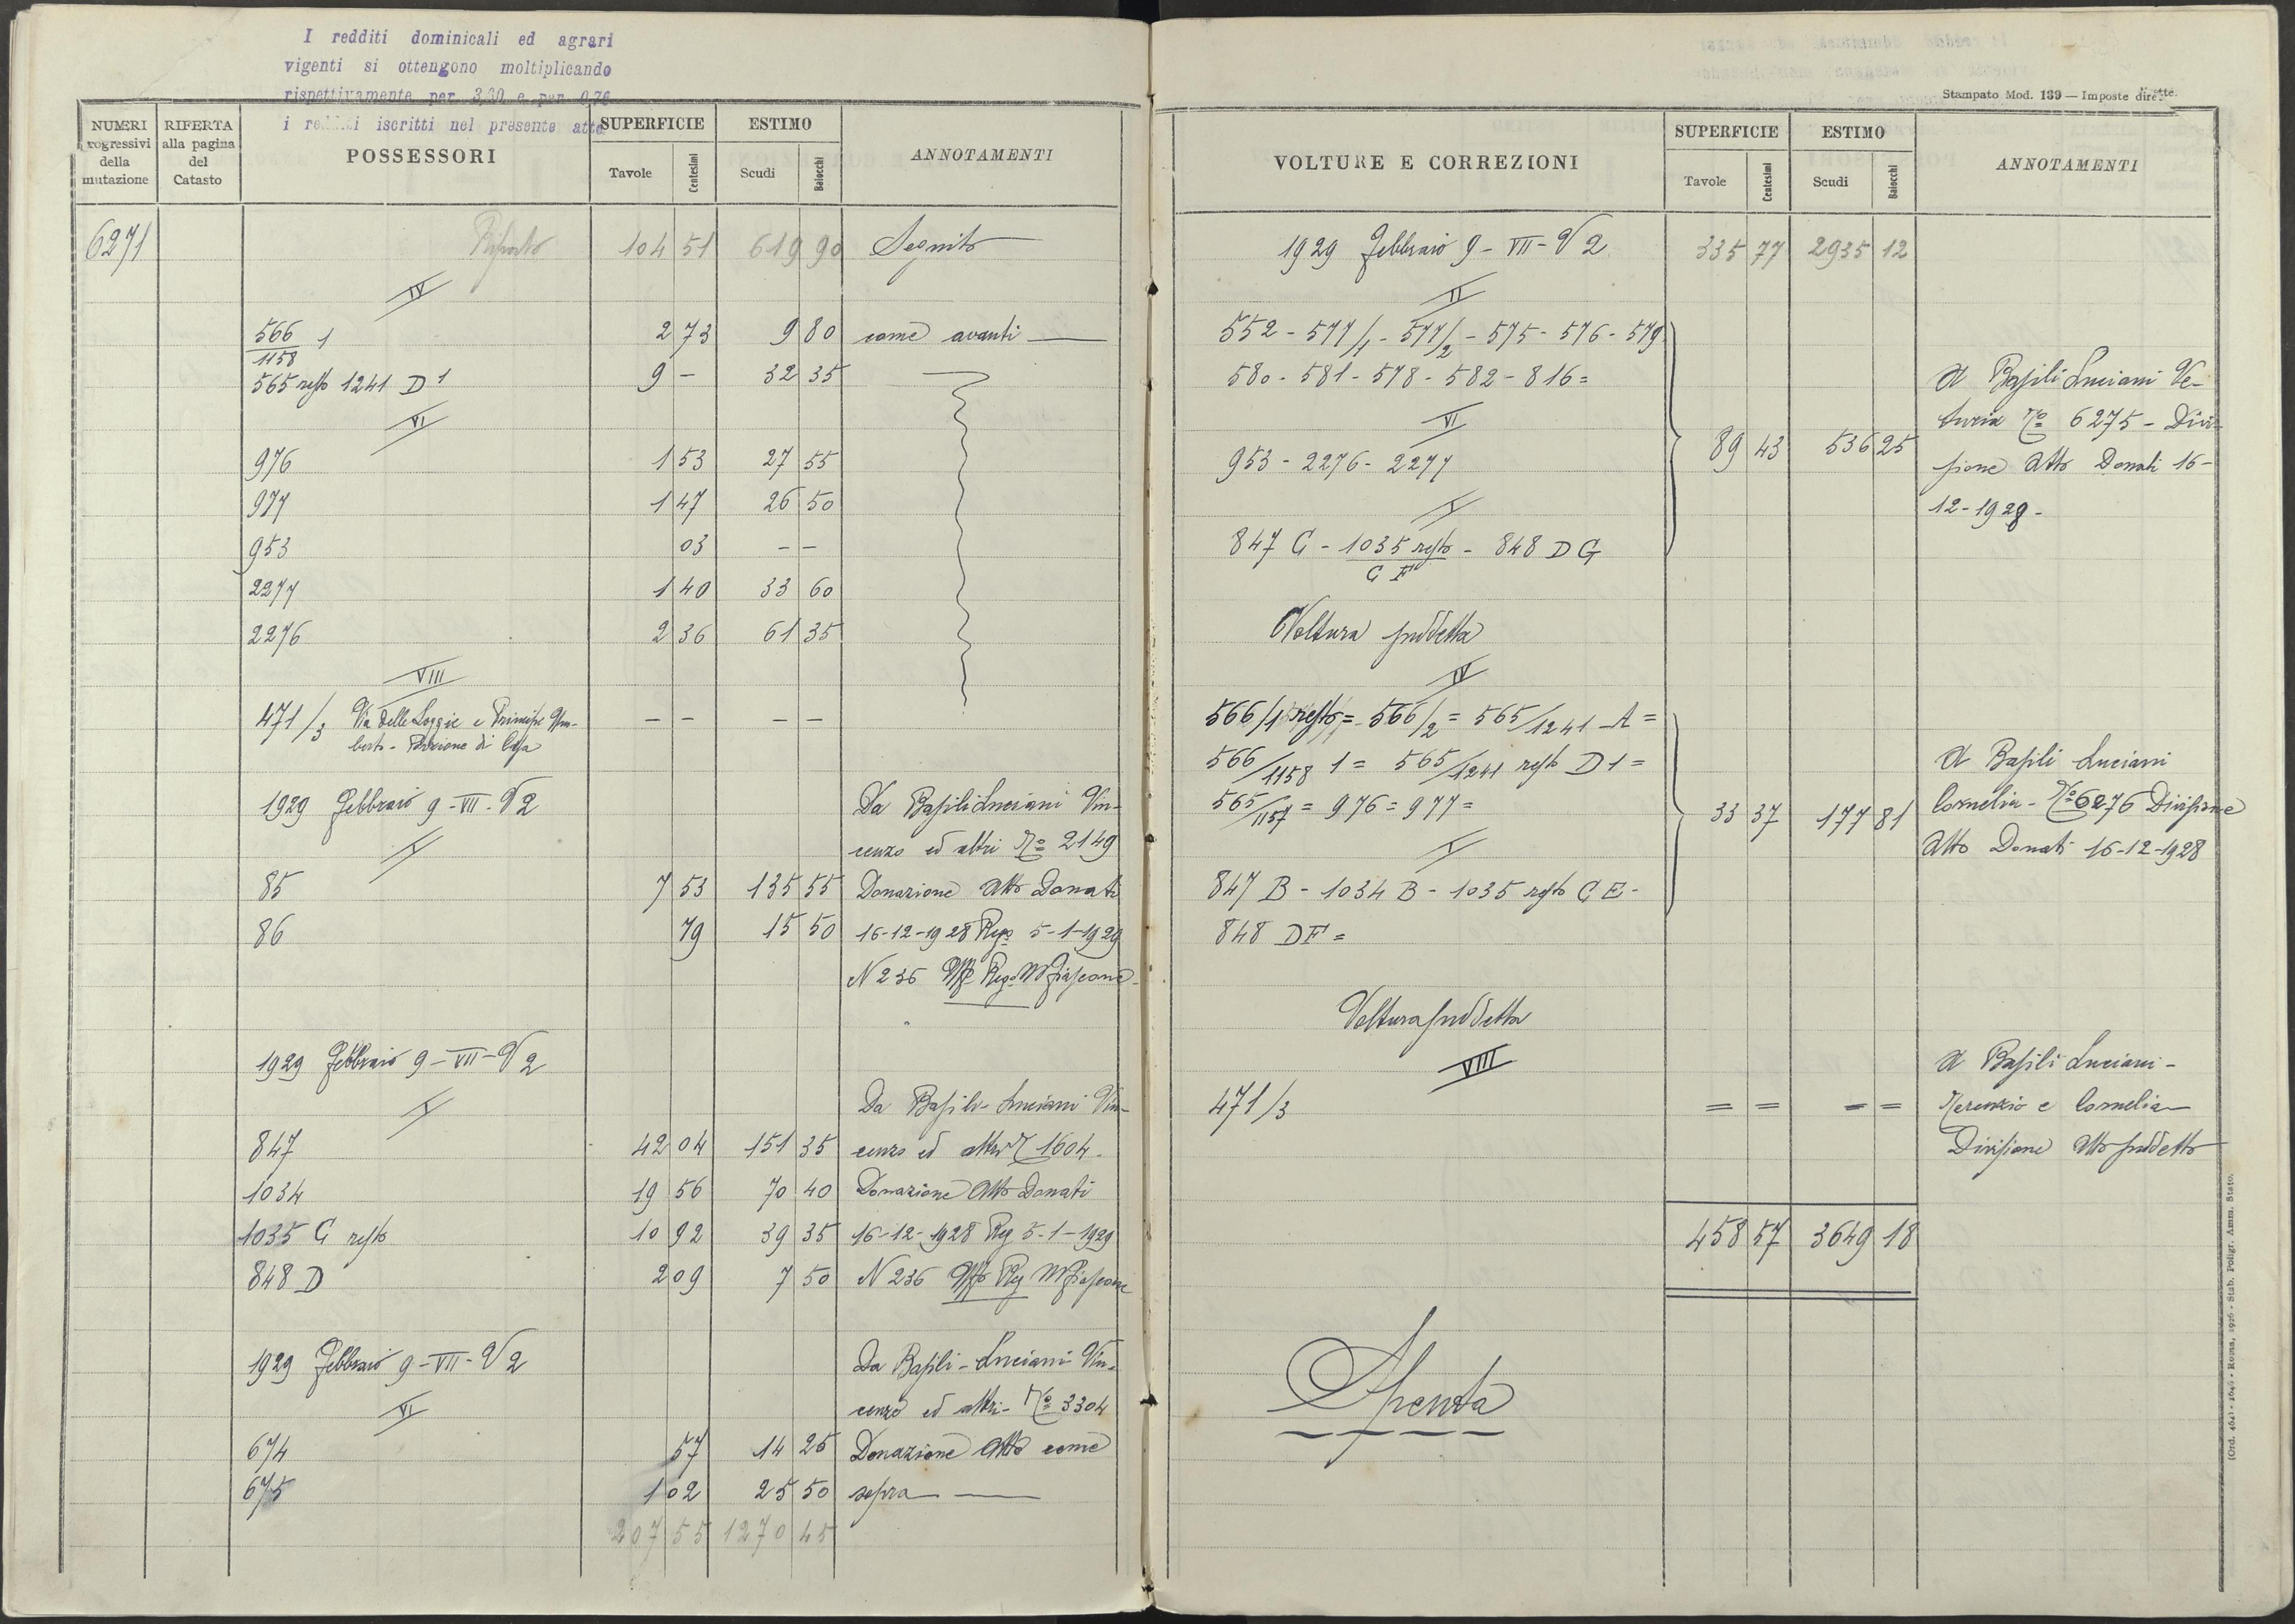 I redditi dominicali ed agrari
vigenti si ottengono moltiplicando
rispettivamente per 3,30 e per 0,76
i redditi iscritti nel presente atto
NUMERI progressivi della mutazione
RIFERTA alla pagina del Catasto
POSSESSORI
SUPERFICIE Tavole Centesimi
ESTIMO Scudi Baiocchi
ANNOTAMENTI
6271 Riporto 104 51 619 90 Seguito
IV
566/1158 1 2 73 9 80 come avanti
565 resto 1241 D 1 9 – 32 35
VI
976 1 53 27 55
977 1 47 26 50
953 03 – –
2277 1 40 33 60
2276 2 36 61 35
VIII
471/3 Via delle Loggie e Principe Um- – – – –
berto - Porzione di Casa
1929 Febbraio 9 - VII - V 2 Da Basili Luciani Vin-
V cenzo ed altri No 2149
85 7 53 135 55 Donazione Atto Donati
86 79 15 50 16-12-1928 Rego 5-1-1929
N 236 Uff Rego Mfiascone
1929 Febbraio 9 - VII - V 2
V Da Basili - Luciani Vin-
847 42 04 151 35 cenzo ed altri N 1604.
1034 19 56 70 40 Donazione Atto Donati
1035 C resto 10 92 39 35 16-12-1928 Reg 5-1-1929
848 D 2 09 7 50 N 236 Uffo Reg Mfiascone
1929 Febbraio 9 - VII - V 2 Da Basili - Luciani Vin-
VI cenzo ed altri - No 3304
674 57 14 25 Donazione Atto come
675 1 02 25 50 sopra
207 55 1270 45
Stampato Mod. 139 — Imposte dirette.
VOLTURE E CORREZIONI
SUPERFICIE Tavole Centesimi
ESTIMO Scudi Baiocchi
ANNOTAMENTI
1929 Febbraio 9 - VII - V 2 335 77 2935 12
II
552 - 577/1 - 577/2 - 575 - 576 - 579
580 - 581 - 578 - 582 - 816 = A Basili Luciani Ve-
VI turia No 6275 - Divi-
953 - 2276 - 2277 89 43 536 25 sione Atto Donati 16-
V 12-1928 -
847 C - 1035 resto - 848 D G
C F
Voltura suddetta
IV
566/1 resto = 566/2 = 565/1241 A =
566/1158 1 = 565/1241 resto D 1 = A Basili Luciani
565/1157 = 976 = 977 = 33 37 177 81 Cornelia - No 6276 Divisione
V Atto Donati 16-12-1928
847 B - 1034 B - 1035 resto C E -
848 D F =
Voltura suddetta
VIII A Basili Luciani -
471/3 = = = = Terenzio e Cornelia
Divisione Atto suddetto
458 57 3649 18
Spenta
(Ord. 4641 - 1646 - Roma, 1926 - Stab. Poligr. Amm. Stato.